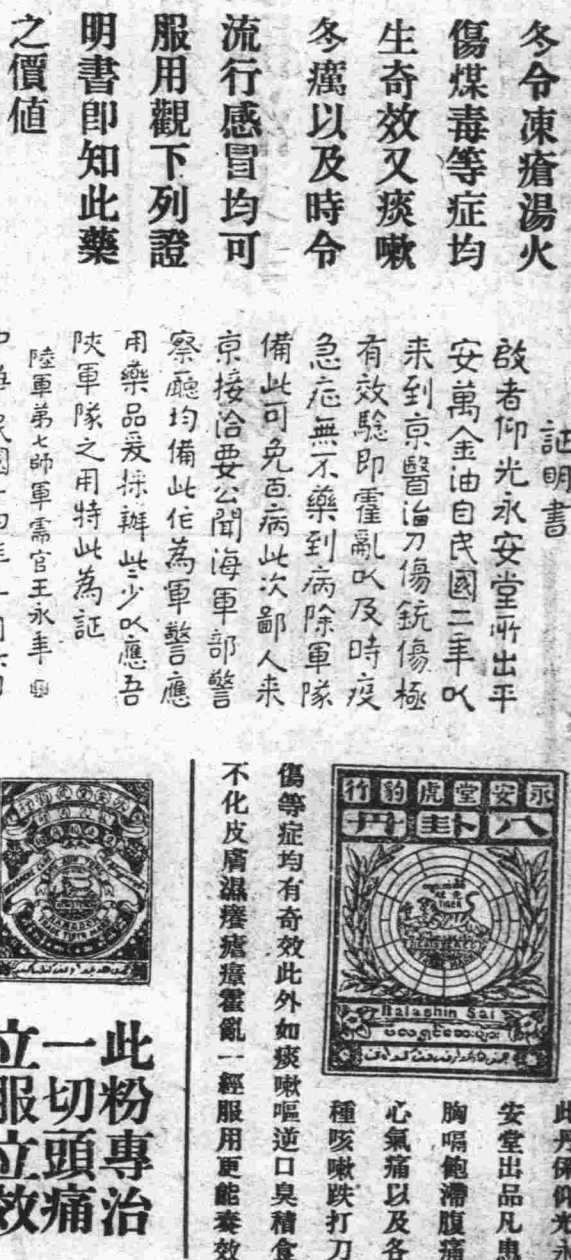 冬令凍瘡湯火
傷煤毒等症均
生奇效又痰嗽
冬癘以及時令
流行感冒均可
服用觀下列證
明書即知此藥
之價值
証明書
啟者仰光永安堂所出平
安萬金油自民國二年以
来到京醫治刀傷銃傷極
有效驗即霍亂以及時疫
急症無不藥到病除軍隊
備此可免百病此次鄙人来
京接洽要公聞海軍部警
察廳均備此佐為軍警應
用藥品爰採辦此少以應吾
陝軍隊之用特此為証
陸軍第七師軍需官王永年
永安堂虎豹行
八卦丹
TIGER
Balashin Sai
此丹係仰光永
安堂出品凡患
胸嗝飽滯腹痛
心氣痛以及各
種咳嗽跌打刀
傷等症均有奇效此外如痰嗽嘔逆口臭積食
不化皮膚濕癢瘡瘰霍亂一經服用更能奏效
此粉專治
一切頭痛
立服立效